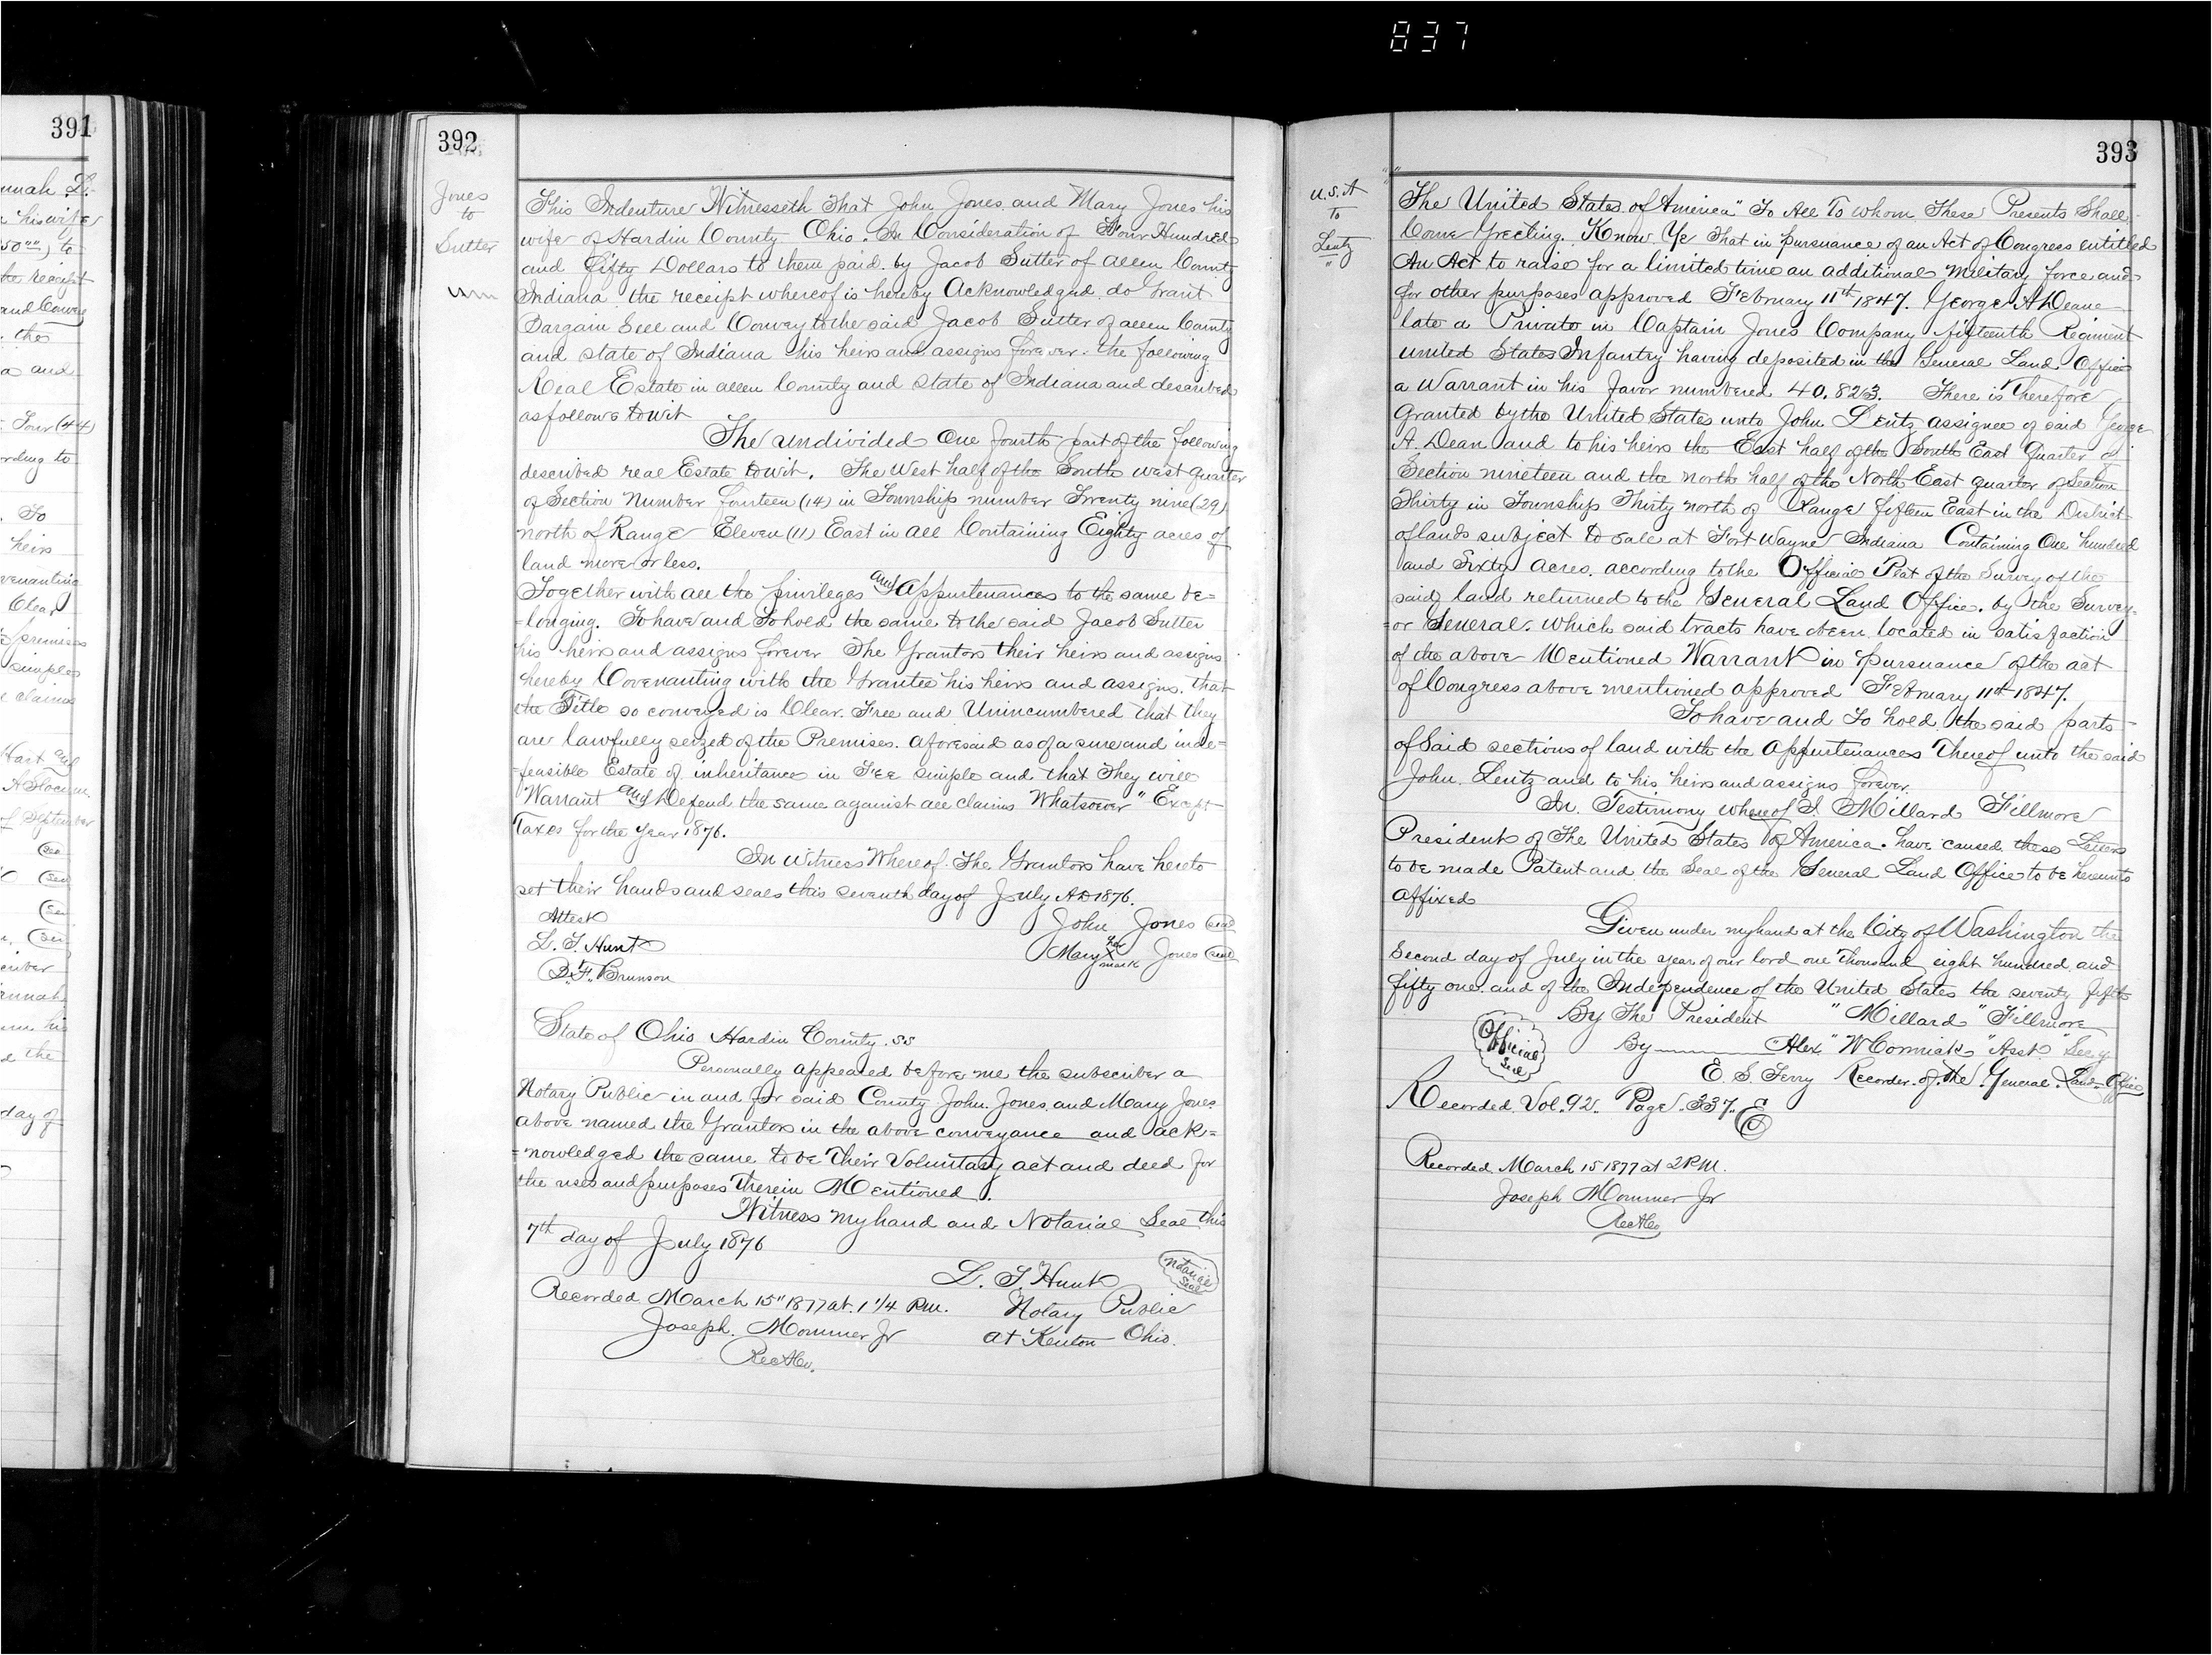 837
391
unnah D.
his wife
50 00) to
the receipt
and Convey
the
and
Four (44)
ording to
To
heirs
venanting
Clear
premises
simple
claims
Hart and
A Slocum
of September
Seal
Seal
Seal
Seal
day of
392
Jones
to
Sutter
This Indenture Witnesseth That John Jones and Mary Jones his
wife of Hardin County Ohio. In Consideration of Four Hundred
and Fifty Dollars to them paid. by Jacob Sutter of allen County
Indiana the receipt whereof is hereby Acknowledged. do Grant
Bargain Sell and Convey to the said Jacob Sutter of allen County
and state of Indiana his heirs and assigns forever. the following
Real Estate in allen County and State of Indiana and described
as follows to wit
The undivided One fourth part of the following
described real Estate to wit. The West half of the South west quarter
of Section Number Fourteen (14) in Township number Twenty nine (29)
north of Range Eleven (11) East in all Containing Eighty acres of
land more or less.
Together with all the privileges and Appurtenances to the same be=
=longing. To have and To hold the same to the said Jacob Sutter
his heirs and assigns forever The Grantors their heirs and assigns
hereby Covenanting with the Grantee his heirs and assigns. that
the Title so conveyed is Clear. Free and Unincumbered that they
are lawfully seized of the Premises. aforesaid as of a sure and inde=
=feasible Estate of inheritance in Fee simple and that They will
Warrant and Defend the same against all claims Whatsoever" Except
Taxes for the year 1876.
In Witness Whereof. The Grantors have hereto
set their hands and seals this seventh day of July AD 1876.
Attest
John Jones seal
L. T. Hunt
Mary her X mark Jones seal
D. F. Brunson
State of Ohio Hardin County. SS
Personally appeared before me the subscriber a
Notary Public in and for said County John. Jones. and Mary Jones.
above named the Grantors in the above conveyance and ack=
=nowledged the same to be Their Voluntary act and deed for
the uses and purposes Therein Mentioned.
Witness my hand and Notarial Seal this
7th day of July 1876
L. T. Hunt
Notarial Seal
Recorded March 15" 1877 at. 1 1/4 P.M.
Notary Public
Joseph. Mommer Jr
at Kenton Ohio.
Rec A Co.
393
U.S.A
To
Lentz
"
The United States of America" To All To whom These Presents Shall
Come Greeting. Know Ye That in pursuance of an Act of Congress entitled
An Act to raise for a limited time an additional military force and
for other purposes approved February 11th 1847. George A Deane
late a Private in Captain Jones Company fifteenth Regiment
United States Infantry having deposited in the General Land Office
a Warrant in his favor numbered 40.823. There is Therefore
Granted by the United States unto John Lentz assignee of said George
A. Dean and to his heirs the East half of the South East Quarter of
Section nineteen and the north half of the North East quarter of Section
Thirty in Township Thirty north of Range fifteen East in the District
of lands subject to sale at Fort Wayne Indiana Containing One hundred
and Sixty Acres. according to the Official Plat of the Survey of the
said land returned to the General Land Office. by the Survey-
=or General. which said tracts have been located in satisfaction
of the above Mentioned Warrant in pursuance of the act
of Congress above mentioned approved February 11th 1847.
To have and To hold the said parts
of Said sections of land with the Appurtenances Thereof unto the said
John. Lentz and to his heirs and assigns forever.
In. Testimony whereof I. Millard Fillmore
President of The United States of America. have caused these Letters
to be made Patent and the Seal of the General Land Office to be hereunto
affixed
Given under my hand at the City of Washington the
Second day of July in the year of our lord one Thousand eight hundred and
fifty one. and of the Independence of the United States the seventy fifth
By The President "Millard" Fillmore
Official Seal
By Alex" McCormick "Asst "Secy
E. S. Terry Recorder. of. the General. Land Office
Recorded. Vol. 92. Page. 337. E
Recorded. March 15 1877 at 2 P.M.
Joseph Mommer Jr
Rec A Co